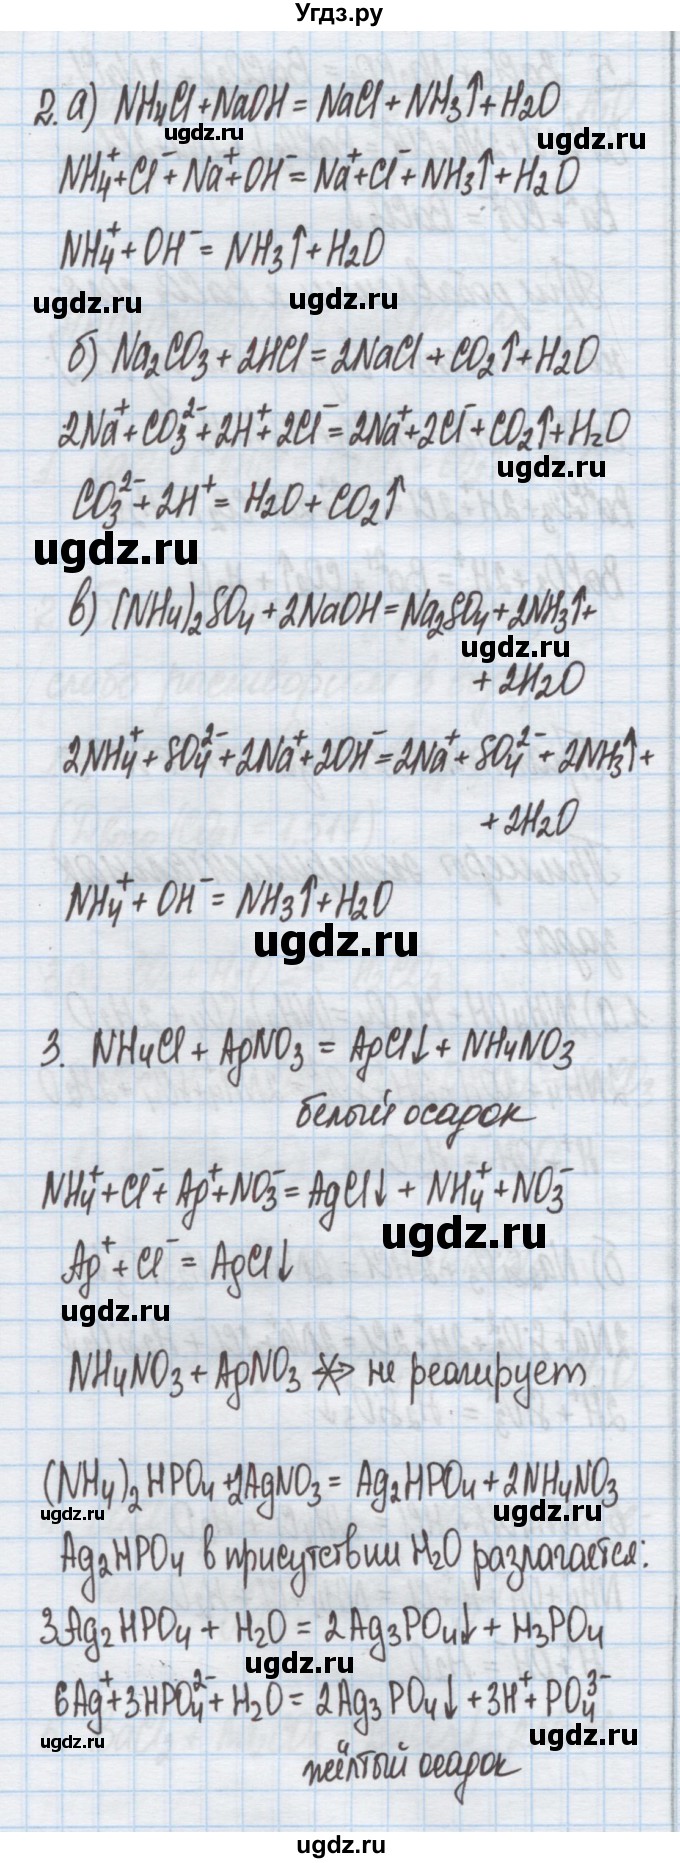 Угдз.ру
2. а) NH₄Cl + NaOH = NaCl + NH₃↑ + H₂O
ugdz.ru
ugdz.ru
NH₄⁺ + Cl⁻ + Na⁺ + OH⁻ = Na⁺ + Cl⁻ + NH₃↑ + H₂O
NH₄⁺ + OH⁻ = NH₃↑ + H₂O
ugdz.ru
ugdz.ru
б) Na₂CO₃ + 2HCl = 2NaCl + CO₂↑ + H₂O
2Na⁺ + CO₃²⁻ + 2H⁺ + 2Cl⁻ = 2Na⁺ + 2Cl⁻ + CO₂↑ + H₂O
ugdz.ru
CO₃²⁻ + 2H⁺ = H₂O + CO₂↑
ugdz.ru
в) (NH₄)₂SO₄ + 2NaOH = Na₂SO₄ + 2NH₃↑ +
ugdz.ru
+ 2H₂O
2NH₄⁺ + SO₄²⁻ + 2Na⁺ + 2OH⁻ = 2Na⁺ + SO₄²⁻ + 2NH₃↑ +
+ 2H₂O
NH₄⁺ + OH⁻ = NH₃↑ + H₂O
ugdz.ru
3. NH₄Cl + AgNO₃ = AgCl↓ + NH₄NO₃
белый осадок
NH₄⁺ + Cl⁻ + Ag⁺ + NO₃⁻ = AgCl↓ + NH₄⁺ + NO₃⁻
ugdz.ru
Ag⁺ + Cl⁻ = AgCl↓
ugdz.ru
NH₄NO₃ + AgNO₃ ⇸ не реагирует
(NH₄)₂HPO₄ + 2AgNO₃ = Ag₂HPO₄ + 2NH₄NO₃
ugdz.ru
ugdz.ru
Ag₂HPO₄ в присутствии H₂O разлагается:
3Ag₂HPO₄ + H₂O = 2Ag₃PO₄↓ + H₃PO₄
ugdz.ru
6Ag⁺ + 3HPO₄²⁻ + H₂O = 2Ag₃PO₄↓ + 3H⁺ + PO₄³⁻
ugdz.ru
ugdz.ru
жёлтый осадок
ugdz.ru